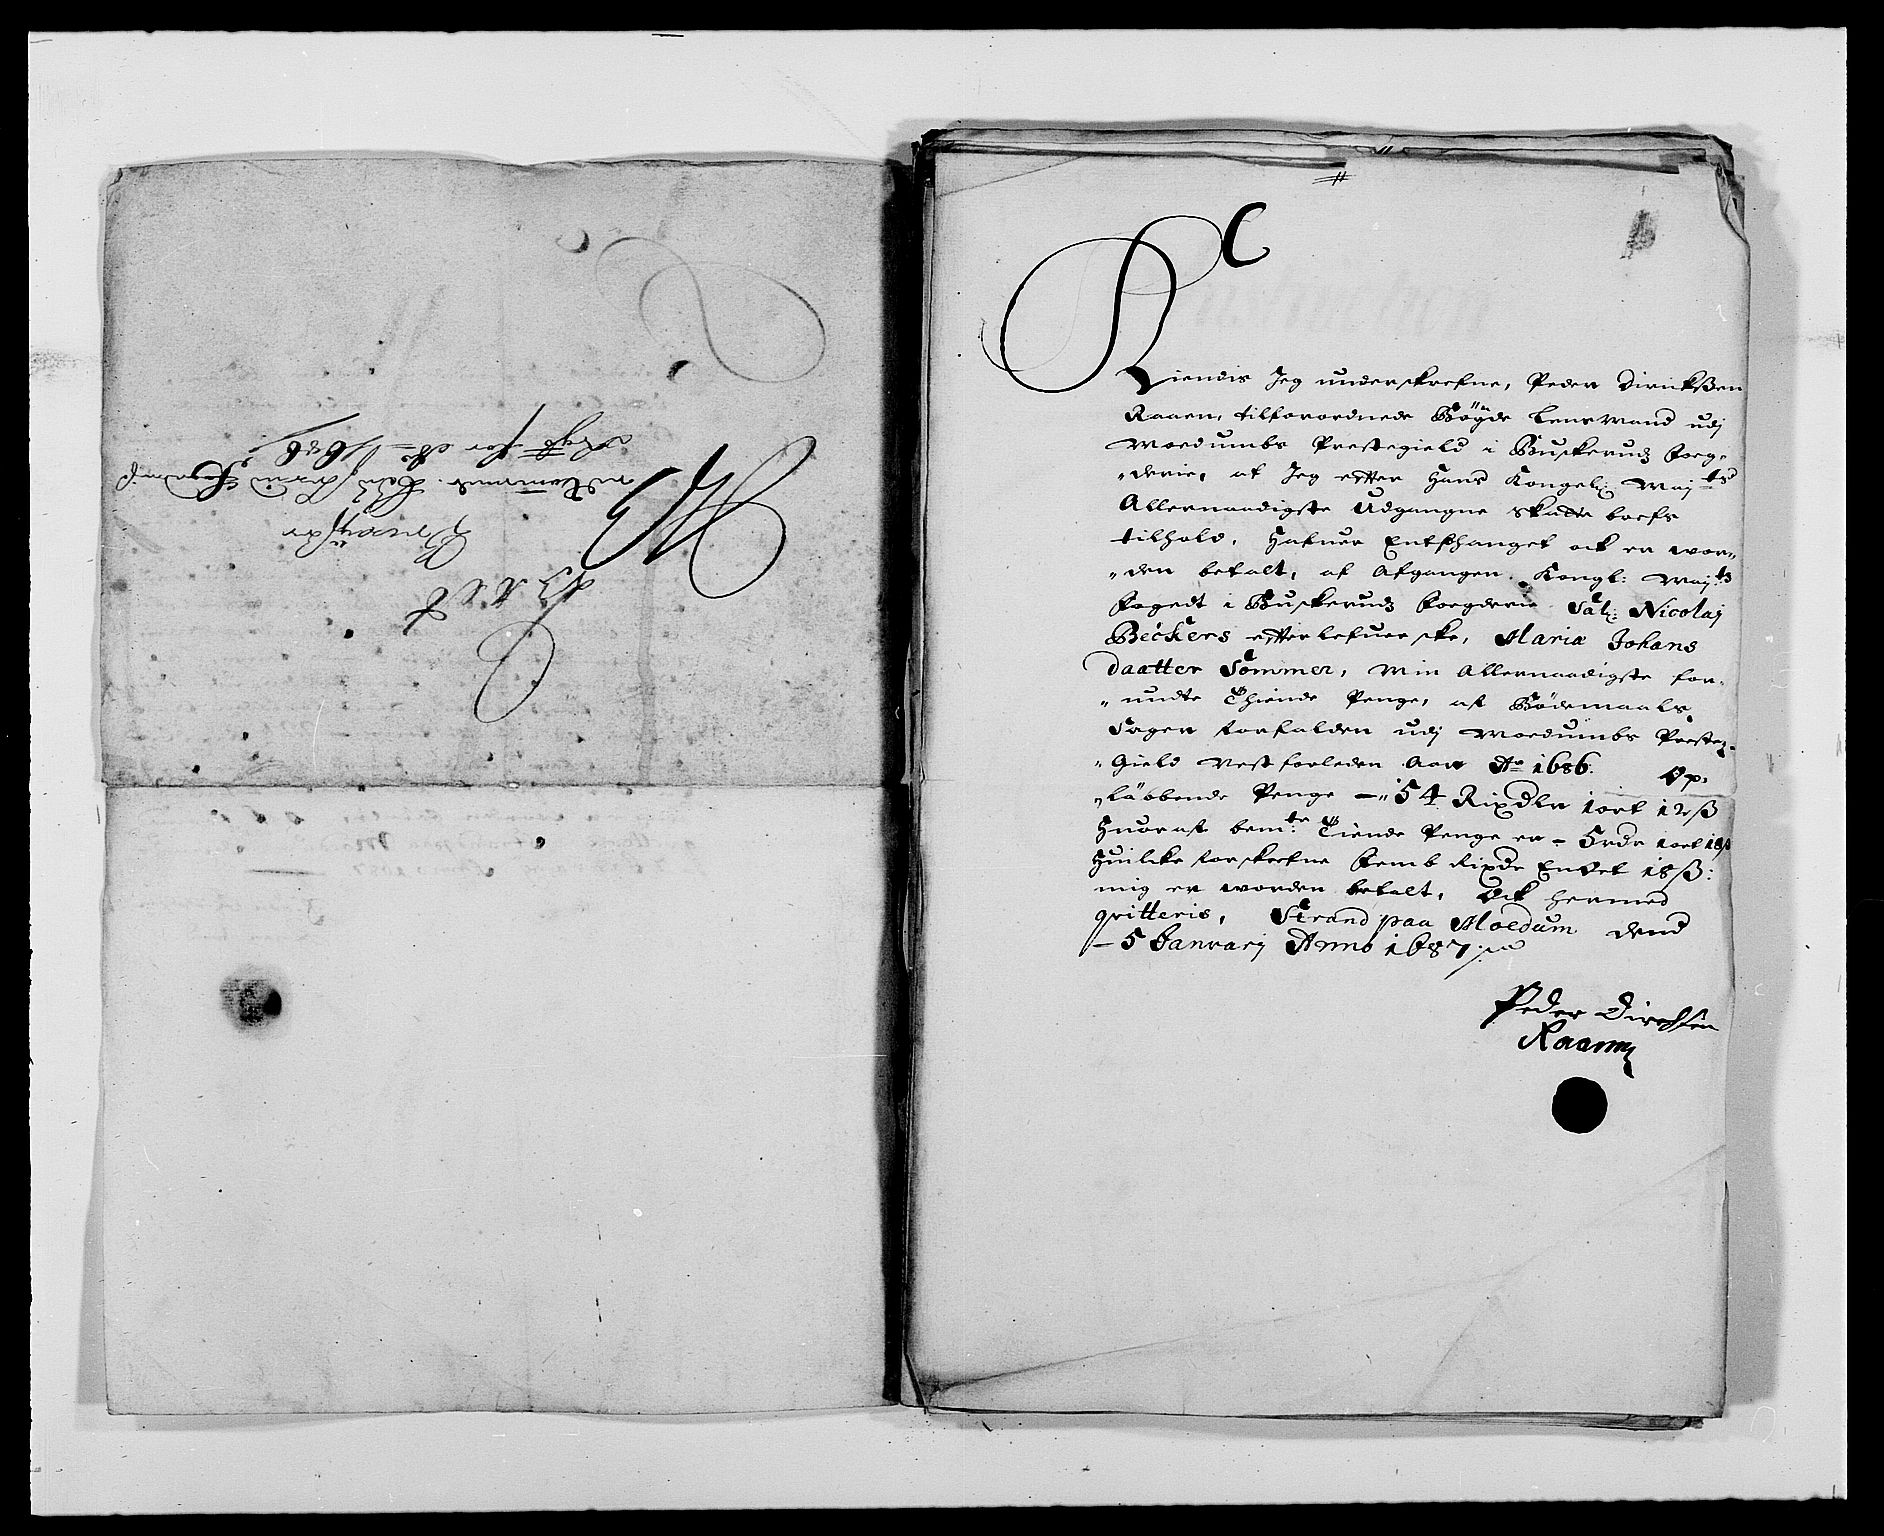 C
Kiendis Jeg underskrefne, Peder Dirickßen
Raaen, tilforordnede Bøygde Lensmand udj
Moedumbs Prestegield i Buskeruds Foeg-
"derie, at Jeg effter Hans Kongel: Maj:ts
Allernaadigste Udgangne Skatte brefs
tilhold, Hafuer Entfhanget ock er wor-
"den betalt, af Afgangen Kongl: Maj:ts
Fogedt i Buskeruds Foegderie Sal: Nicolaj
Beckers effterlefuerske, Maria Johans
daatter Sommer, Min Allernaadigste for-
"undte Thiende Penge, af Bødemaals
Sager forfalden udj Moedumbs Preste-
"Gield Nest forleden Aar Ao 1686. Op-
"løbbende Penge - 54 Rixdlr 1 ort 12 ß
Huoraf bem:te Tiende Penge er - 5 rdr 1 ort 18 ß
Huilcke forskrefne Femb Rixdr En Ort 18 ß:
mig er worden betalt, Ock hermed
qvitteris, Strand paa Moedum dend
- 5 Januarj Anno 1687
Peder Dirchsen
Raaen
for Ao 1686